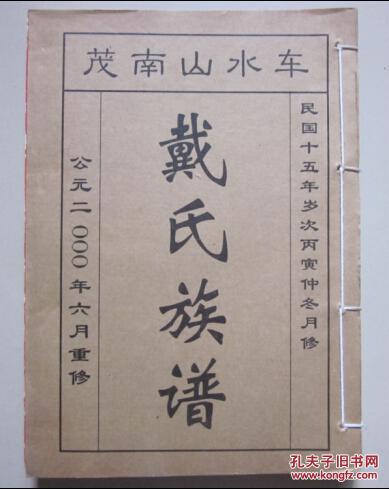 茂南山水车
民国十五年岁次丙寅仲冬月修
戴氏族谱
公元二000年六月重修
孔夫子旧书网